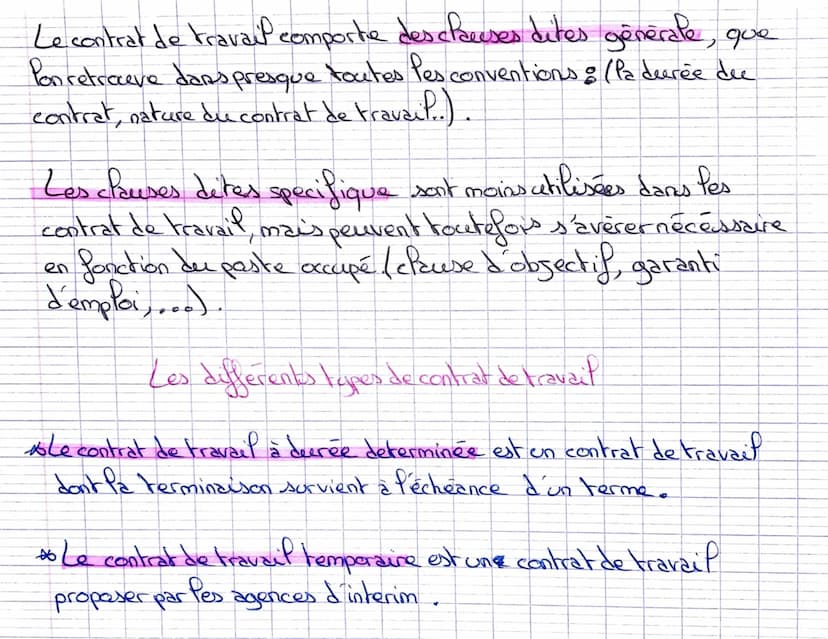 Le contrat de travail comporte des clauses dites générale, que
l'on retrouve dans presque toutes les conventions : (la durée du
contrat, nature du contrat de travail..).
Les clauses dites specifique sont moins utilisées dans les
contrat de travail, mais peuvent toutefois s'avérer nécéssaire
en fonction du poste occupé (clause d'objectif, garanti
d'emploi,...).
Les différents types de contrat de travail
*Le contrat de travail à durée determinée est un contrat de travail
dont la terminaison survient à l'échéance d'un terme.
*Le contrat de travail temporaire est une contrat de travail
proposer par les agences d'interim.